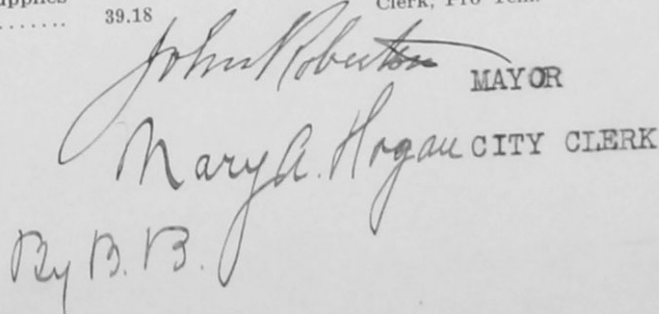 39.18
Clerk, Pro Tem.
John Roberton MAYOR
Mary A. Hogan CITY CLERK
By B. B.